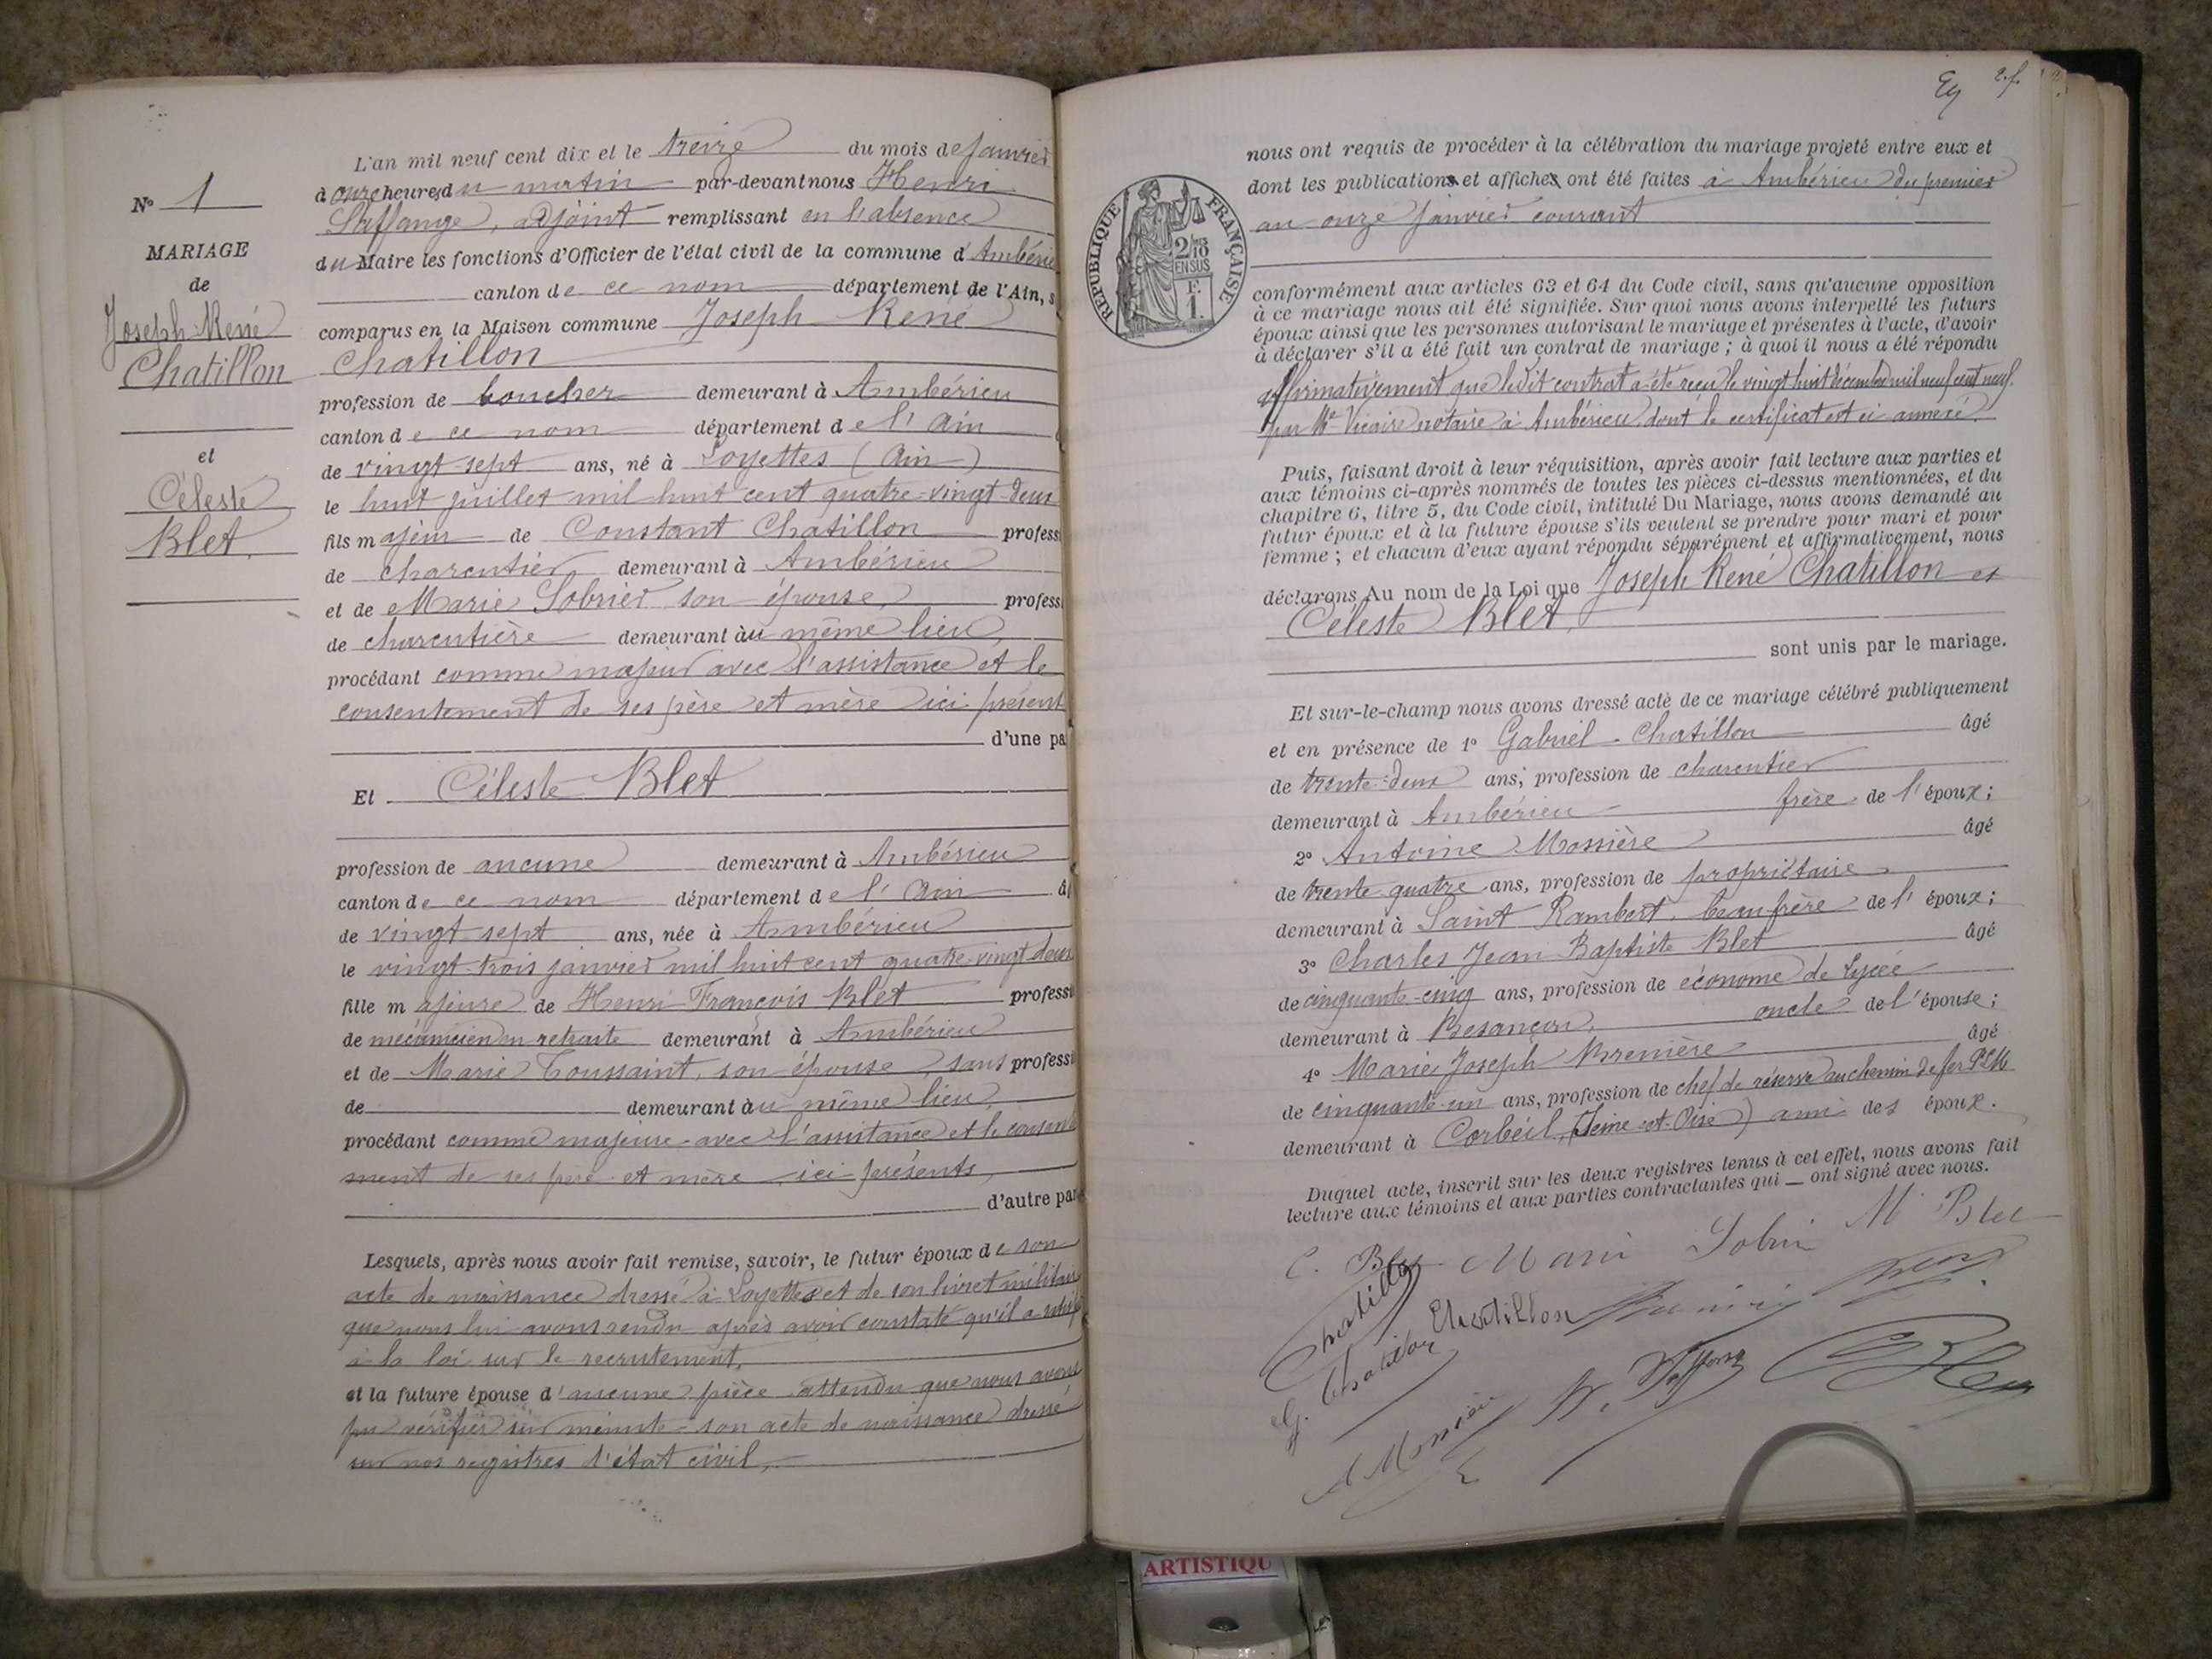 N° 1
MARIAGE
de
Joseph René
Chatillon
et
Céleste
Blet
L'an mil neuf cent dix et le treize du mois de janvier
à onze heures du matin par-devant nous Henri
adjoint remplissant en l'absence
du Maire les fonctions d'Officier de l'état civil de la commune d'Ambérieu
canton de ce nom département de l'Ain, s
comparus en la Maison commune Joseph René
Chatillon
profession de boucher demeurant à Ambérieu
canton de ce nom département de l'Ain
de vingt-sept ans, né à Loyettes (Ain)
le huit juillet mil huit cent quatre-vingt-deux
fils majeur de Constant Chatillon professi
de charcutier demeurant à Ambérieu
et de Marie Sobrier son épouse, professi
de charcutière demeurant au même lieu,
procédant comme majeur avec l'assistance et le
consentement de ses père et mère ici présent
d'une pa
Et Céleste Blet
profession de aucune demeurant à Ambérieu
canton de ce nom département de l'Ain âg
de vingt-sept ans, née à Ambérieu
le vingt-trois janvier mil huit cent quatre-vingt-deux
fille majeure de Henri François Blet professi
de mécanicien en retraite demeurant à Ambérieu
et de Marie Toussaint, son épouse, sans professi
de demeurant au même lieu,
procédant comme majeure avec l'assistance et le consente
ment de ses père et mère ici présents,
d'autre par
Lesquels, après nous avoir fait remise, savoir, le futur époux de son
acte de naissance dressé à Loyettes et de son livret militaire
que nous lui avons rendu après avoir constaté qu'il a satisf
à la loi sur le recrutement,
et la future épouse d'aucune pièce attendu que nous avons
pu vérifier sur minute son acte de naissance dressé
sur nos registres d'état civil,
2. f.
RÉPUBLIQUE FRANÇAISE
2/10
EN SUS
F.
1.
nous ont requis de procéder à la célébration du mariage projeté entre eux et
dont les publications et affiches ont été faites à Ambérieu du premier
au onze janvier courant
conformément aux articles 63 et 64 du Code civil, sans qu'aucune opposition
à ce mariage nous ait été signifiée. Sur quoi nous avons interpellé les futurs
époux ainsi que les personnes autorisant le mariage et présentes à l'acte, d'avoir
à déclarer s'il a été fait un contrat de mariage ; à quoi il nous a été répondu
affirmativement que ledit contrat a été reçu le vingt huit décembre mil neuf cent neuf
par Me Vicaire notaire à Ambérieu dont le certificat est ci annexé.
Puis, faisant droit à leur réquisition, après avoir fait lecture aux parties et
aux témoins ci-après nommés de toutes les pièces ci-dessus mentionnées, et du
chapitre 6, titre 5, du Code civil, intitulé Du Mariage, nous avons demandé au
futur époux et à la future épouse s'ils veulent se prendre pour mari et pour
femme ; et chacun d'eux ayant répondu séparément et affirmativement, nous
déclarons Au nom de la Loi que Joseph René Chatillon et
Céleste Blet,
sont unis par le mariage.
Et sur-le-champ nous avons dressé acte de ce mariage célébré publiquement
et en présence de 1° Gabriel Chatillon âgé
de trente-deux ans, profession de charcutier
demeurant à Ambérieu frère de l'époux ;
2° Antoine Mossière âgé
de trente-quatre ans, profession de propriétaire
demeurant à Saint Rambert, beau frère de l'époux ;
3° Charles Jean Baptiste Blet âgé
de cinquante-cinq ans, profession de économe de lycée
demeurant à Besançon, oncle de l'épouse ;
4° Marie Joseph Brenière âgé
de cinquante-un ans, profession de chef de réserve au chemin de fer PLM
demeurant à Corbeil (Seine-et-Oise) ami des époux.
Duquel acte, inscrit sur les deux registres tenus à cet effet, nous avons fait
lecture aux témoins et aux parties contractantes qui — ont signé avec nous.
C. Blet Marie Sobrier M Blet
Chatillon
G. Chatillon Chatillon
A Mossière
ARTISTIQU